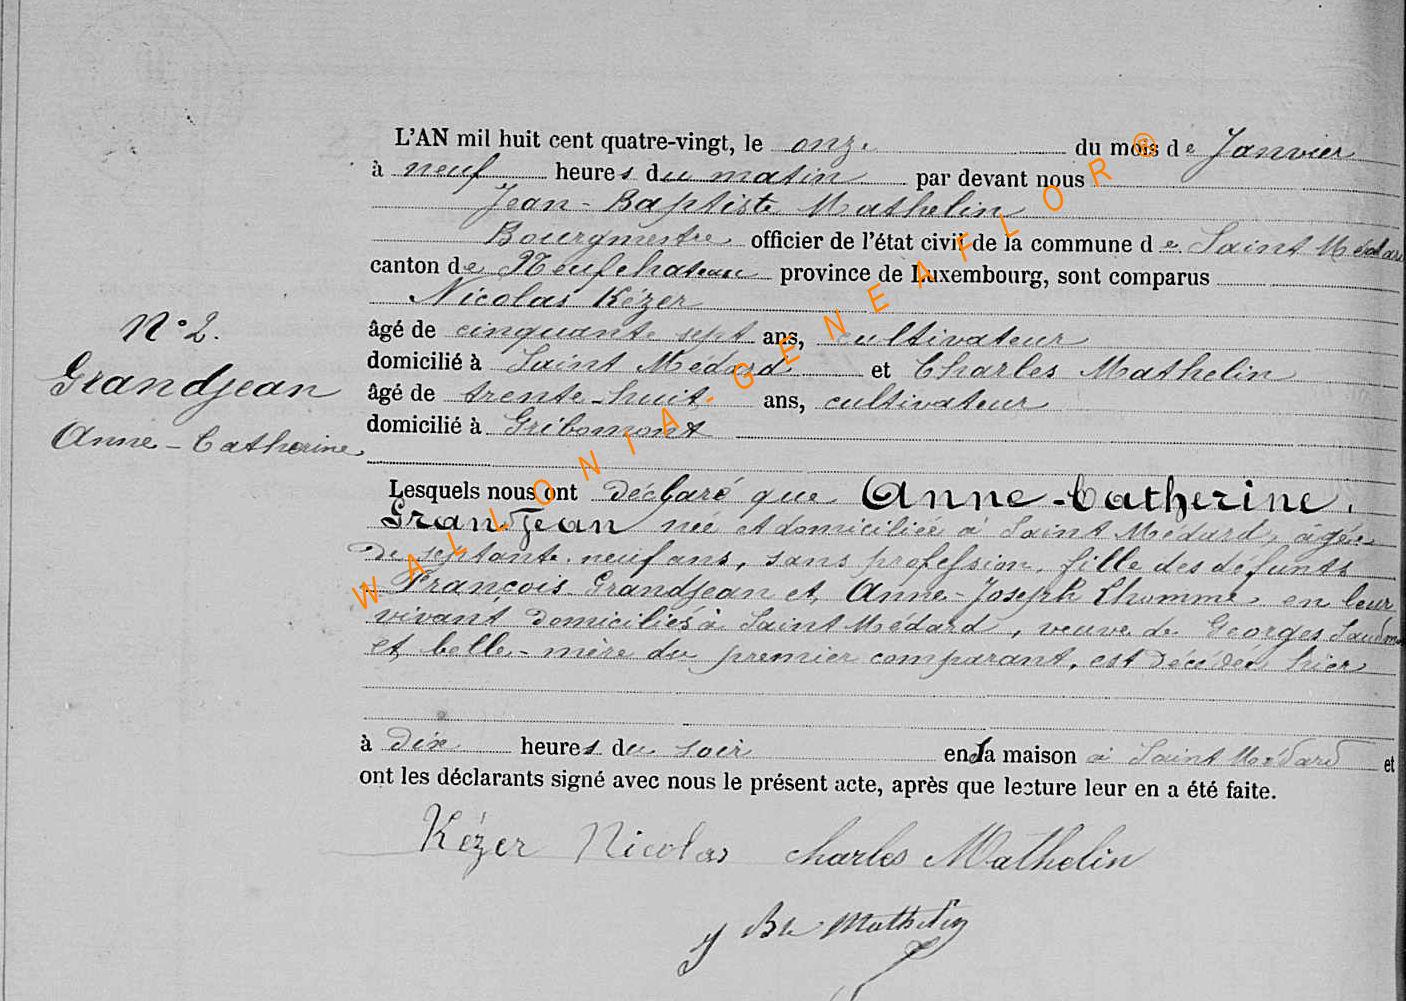 L'AN mil huit cent quatre-vingt, le onze du mois de Janvier
à neuf heures du matin par devant nous
Jean-Baptiste Mathelin
Bourgmestre officier de l'état civil de la commune de Saint Médard
canton de Neufchateau province de Luxembourg, sont comparus
Nicolas Kézer
âgé de cinquante sept ans, cultivateur
domicilié à Saint Médard et Charles Mathelin
âgé de trente-huit ans, cultivateur
domicilié à Gribomont
N° 2.
Grandjean
Anne-Catherine
Lesquels nous ont déclaré que Anne-Catherine
Grandjean née et domiciliée à Saint Médard, âgée
de septante-neuf ans, sans profession, fille des défunts
François Grandjean et Anne-Joseph Lhomme en leur
vivant domiciliés à Saint Médard, veuve de Georges
et belle-mère du premier comparant, est décédée hier
à dix heures du soir en sa maison à Saint Médard et
ont les déclarants signé avec nous le présent acte, après que lecture leur en a été faite.
Kézer Nicolas Charles Mathelin
J Bte Mathelin
WALLONIA-GENEAFLOR ®